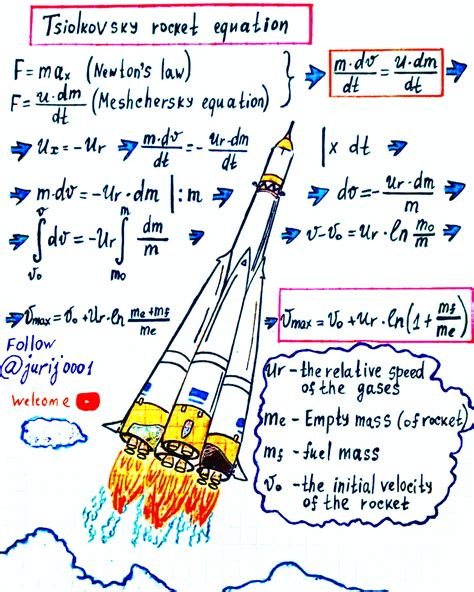 Tsiolkovsky rocket equation
F=maₓ (Newton's law)
F=u·dm/dt (Meshchersky equation)
m·dv/dt=u·dm/dt
uₓ=-ur
m·dv/dt=-ur·dm/dt
|x dt
m·dv=-ur·dm |:m
dv=-ur·dm/m
∫v₀^v dv=-ur∫m₀^m dm/m
v-v₀=ur·ln m₀/m
vmax=v₀+ur·ln me+mf/me
vmax=v₀+ur·ln(1+mf/me)
Follow
@jurij0001
Welcome
ur - the relative speed
of the gases
me - Empty mass (of rocket)
mf - fuel mass
v₀ - the initial velocity
of the rocket